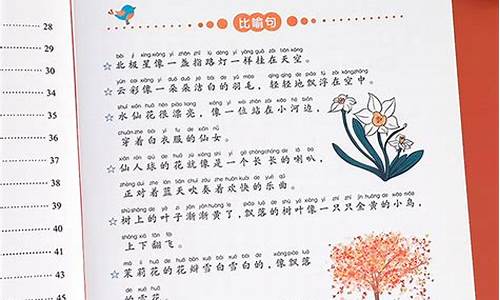 28
34
35
36
38
39
41
45
43
比喻句
běi jí xīng xiàng yì zhǎn zhǐ lù dēng yí yàng guà zài tiān kōng
☆北极星像一盏指路灯一样挂在天空。
yún cai xiàng yì duǒ duǒ jié bái de yǔ máo qīng qīng de piāo fú zài kōng zhōng
☆云彩像一朵朵洁白的羽毛，轻轻地飘浮在空中。
shuǐ xiān huā hěn piào liang xiàng yí wèi zhàn zài xiǎo hé biān
☆水仙花很漂亮，像一位站在小河边，
chuān zhe bái yī fu de xiān nǚ
穿着白衣服的仙女。
xiān rén qiú de huā jiù xiàng shì yí gè cháng cháng de lǎ ba
☆仙人球的花就像是一个长长的喇叭，
zhèng duì zhe lán tiān chuī zòu zhe huān kuài de yuè qǔ
正对着蓝天吹奏着欢快的乐曲。
shù shàng de yè zi jiàn jiàn huáng le piāo luò de shù yè xiàng yì zhī zhī jīn huáng de xiǎo niǎo
☆树上的叶子渐渐黄了，飘落的树叶像一只只金黄的小鸟，
shàng xià fān fēi
上下翻飞。
mò lì huā de huā bàn xuě bái xuě bái de xiàng piāo luò
☆茉莉花的花瓣雪白雪白的，像飘落
的雪花。